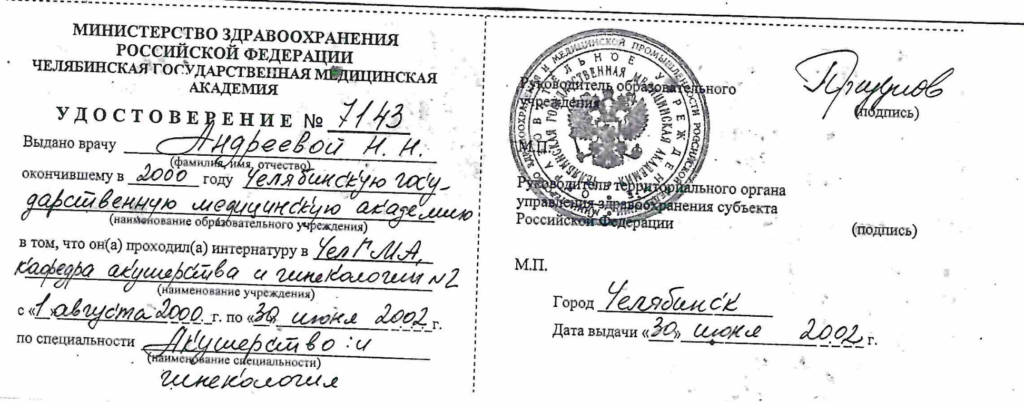 МИНИСТЕРСТВО ЗДРАВООХРАНЕНИЯ
РОССИЙСКОЙ ФЕДЕРАЦИИ
ЧЕЛЯБИНСКАЯ ГОСУДАРСТВЕННАЯ МЕДИЦИНСКАЯ
АКАДЕМИЯ
УДОСТОВЕРЕНИЕ № 7143
Выдано врачу Андреевой Н. Н.
(фамилия, имя, отчество)
окончившему в 2000 году Челябинскую госу-
дарственную медицинскую академию
(наименование образовательного учреждения)
в том, что он(а) проходил(а) интернатуру в ЧелГМА,
кафедра акушерства и гинекологии №2
(наименование учреждения)
с «1» августа 2000 г. по «30» июня 2002 г.
по специальности Акушерство и
(наименование специальности)
гинекология
Руководитель образовательного
учреждения
(подпись)
М.П.
Руководитель территориального органа
управления здравоохранения субъекта
Российской Федерации
(подпись)
М.П.
Город Челябинск
Дата выдачи «30» июня 2002 г.
ЧЕЛЯБИНСКАЯ ГОСУДАРСТВЕННАЯ МЕДИЦИНСКАЯ АКАДЕМИЯ